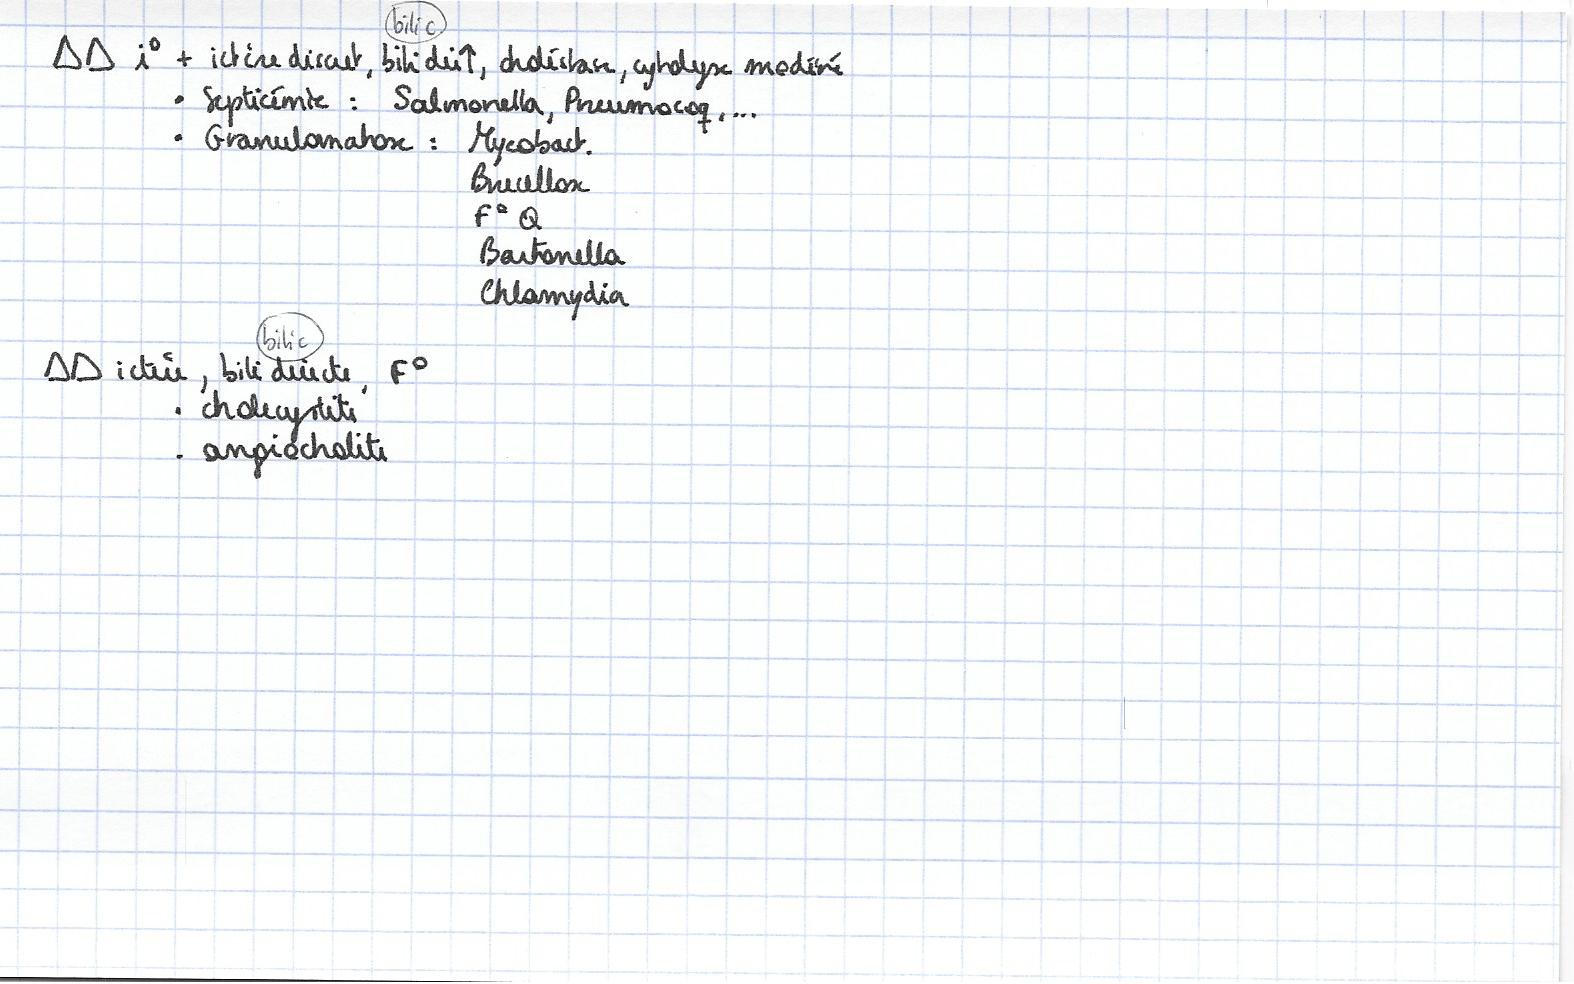 bili c
ΔΔ i° + ictère discret, bili dir↑, cholestase, cytolyse modéré
• Septicémie : Salmonella, Pneumocoq, ...
• Granulomatose : Mycobact.
Brucellose
F° Q
Bartonella
Chlamydia
bili c
ΔΔ ictère, bili directe, F°
• cholecystite
• angiocholite